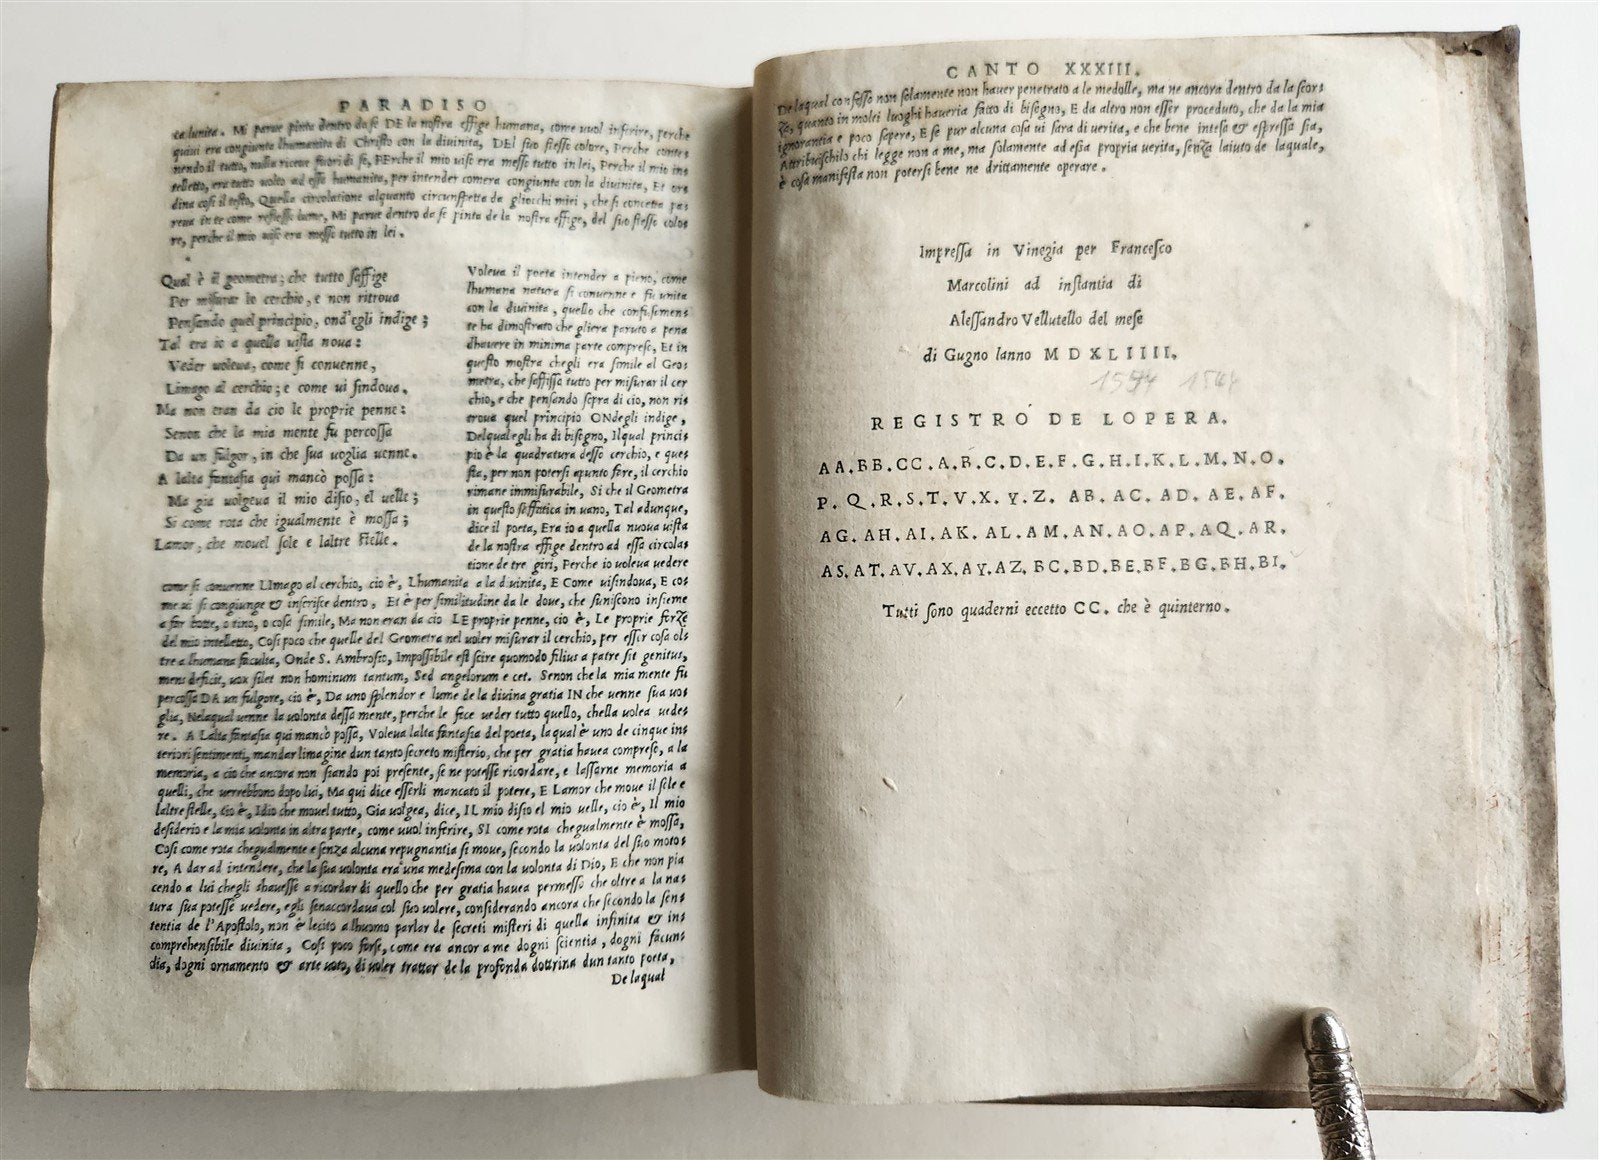 PARADISO
ta lunita. Mi parue pinta dentro da se DE la nostra effige humana, come uuol inferire, perche
quiui era congiunta lhumanita di Christo con la diuinita, DEl suo stesso colore, Perche conte=
nendo il tutto, nulla riceue fuori di se, PErche il mio uiso era messo tutto in lei, Perche il mio in=
telletto, era tutto uolto ad essa humanita, per intender comera congiunta con la diuinita, Et or=
dina cosi il testo, Quella circolatione alquanto circunspetta da gliocchi miei, che si concetta pa=
reua in te come reflesso lume, Mi parue dentro da se pinta de la nostra effige, del suo stesso colo=
re, perche il mio uiso era messo tutto in lei.
Qual è il geometra; che tutto saffige
Per misurar lo cerchio, e non ritroua
Pensando quel principio, ond'egli indige;
Tal era io a quella uista noua:
Veder uoleua, come si conuenne,
Limago al cerchio; e come ui sindoua.
Ma non eran da cio le proprie penne:
Senon che la mia mente fu percossa
Da un fulgor, in che sua uoglia uenne.
A lalta fantasia qui mancò possa:
Ma gia uolgeua il mio disio, el uelle;
Si come rota che igualmente è mossa;
Lamor, che mouel sole e laltre stelle.
Voleua il poeta intender a pieno, come
lhumana natura si conuenne e fu unita
con la diuinita, quello che confusamen=
te ha dimostrato che gliera paruto a pena
dhauere in minima parte compreso, Et in
questo mostra chegli era simile al Geo=
metra, che saffissa tutto per misurar il cer
chio, e che pensando sopra di cio, non ri=
troua quel principio ONdegli indige,
Delqual egli ha di bisogno, Ilqual princi=
pio è la quadratura desso cerchio, e que=
sta, per non potersi apunto fare, il cerchio
rimane immisurabile, Si che il Geometra
in questo saffatica in uano, Tal adunque,
dice il poeta, Era io a quella nuoua uista
de la nostra effige dentro ad essa circola=
tione de tre giri, Perche io uoleua uedere
come si conuenne LImago al cerchio, cio è, Lhumanita a la diuinita, E Come uisindoua, E co=
me ui si congiunge & inserisce dentro, Et è per similitudine da le doue, che suniscono insieme
a far botte, o tino, o cosa simile, Ma non eran da cio LE proprie penne, cio è, Le proprie forze
del mio intelletto, Cosi poco che quelle del Geometra nel uoler misurar il cerchio, per esser cosa ol=
tre a lhumana faculta, Onde S. Ambrosio, Impossibile est scire quomodo filius a patre sit genitus,
mens deficit, uox silet non hominum tantum, Sed angelorum e cet. Senon che la mia mente fu
percossa DA un fulgore, cio è, Da uno splendor e lume de la diuina gratia IN che uenne sua uo=
glia, Nelaqual uenne la uolonta dessa mente, perche le fece ueder tutto quello, chella uolea uede=
re. A Lalta fantasia qui mancò possa, Voleua lalta fantasia del poeta, laqual è uno de cinque in=
teriori sentimenti, mandar limagine dun tanto secreto misterio, che per gratia hauea compreso, a la
memoria, a cio che ancora non siando poi presente, se ne potesse ricordare, e lassarne memoria a
quelli, che uerrebbono dopo lui, Ma qui dice esserli mancato il potere, E Lamor che moue il sole e
laltre stelle, cio è, Idio che mouel tutto, Gia uolgea, dice, IL mio disio el mio uelle, cio è, Il mio
desiderio e la mia uolonta in altra parte, come uuol inferire, SI come rota chegualmente è mossa,
Cosi come rota chegualmente e senza alcuna repugnantia si moue, secondo la uolonta del suo moto=
re, A dar ad intendere, che la sua uolonta era una medesima con la uolonta di Dio, E che non pia
cendo a lui chegli shauesse a ricordar di quello che per gratia hauea permesso che oltre a la na=
tura sua potesse uedere, egli senaccordaua col suo uolere, considerando ancora che secondo la sen=
tentia de l'Apostolo, non è lecito a lhuomo parlar de secreti misteri di quella infinita & in=
comprehensibile diuinita, Cosi poco forse, come era ancor a me dogni scientia, dogni facun=
dia, dogni ornamento & arte uoto, di uoler trattar de la profonda dottrina dun tanto poeta,
De laqual
CANTO XXXIII.
De laqual confesso non solamente non hauer penetrato a le medolle, ma ne ancora dentro da la scor=
za, quanto in molti luoghi haueria fatto di bisogno, E da altro non esser proceduto, che da la mia
ignorantia e poco sapere, E se pur alcuna cosa ui sara di uerita, e che bene intesa & espressa sia,
Attribuischilo chi legge non a me, ma solamente ad esia propria uerita, senza laiuto de laquale,
è cosa manifesta non potersi bene ne drittamente operare.
Impressa in Vinegia per Francesco
Marcolini ad instantia di
Alessandro Vellutello del mese
di Gugno lanno MDXLIIII.
1544 1544
REGISTRO DE LOPERA.
AA. BB. CC. A. B. C. D. E. F. G. H. I. K. L. M. N. O.
P. Q. R. S. T. V. X. Y. Z. AB. AC. AD. AE. AF.
AG. AH. AI. AK. AL. AM. AN. AO. AP. AQ. AR.
AS. AT. AV. AX. AY. AZ. BC. BD. BE. BF. BG. BH. BI.
Tutti sono quaderni eccetto CC. che è quinterno.